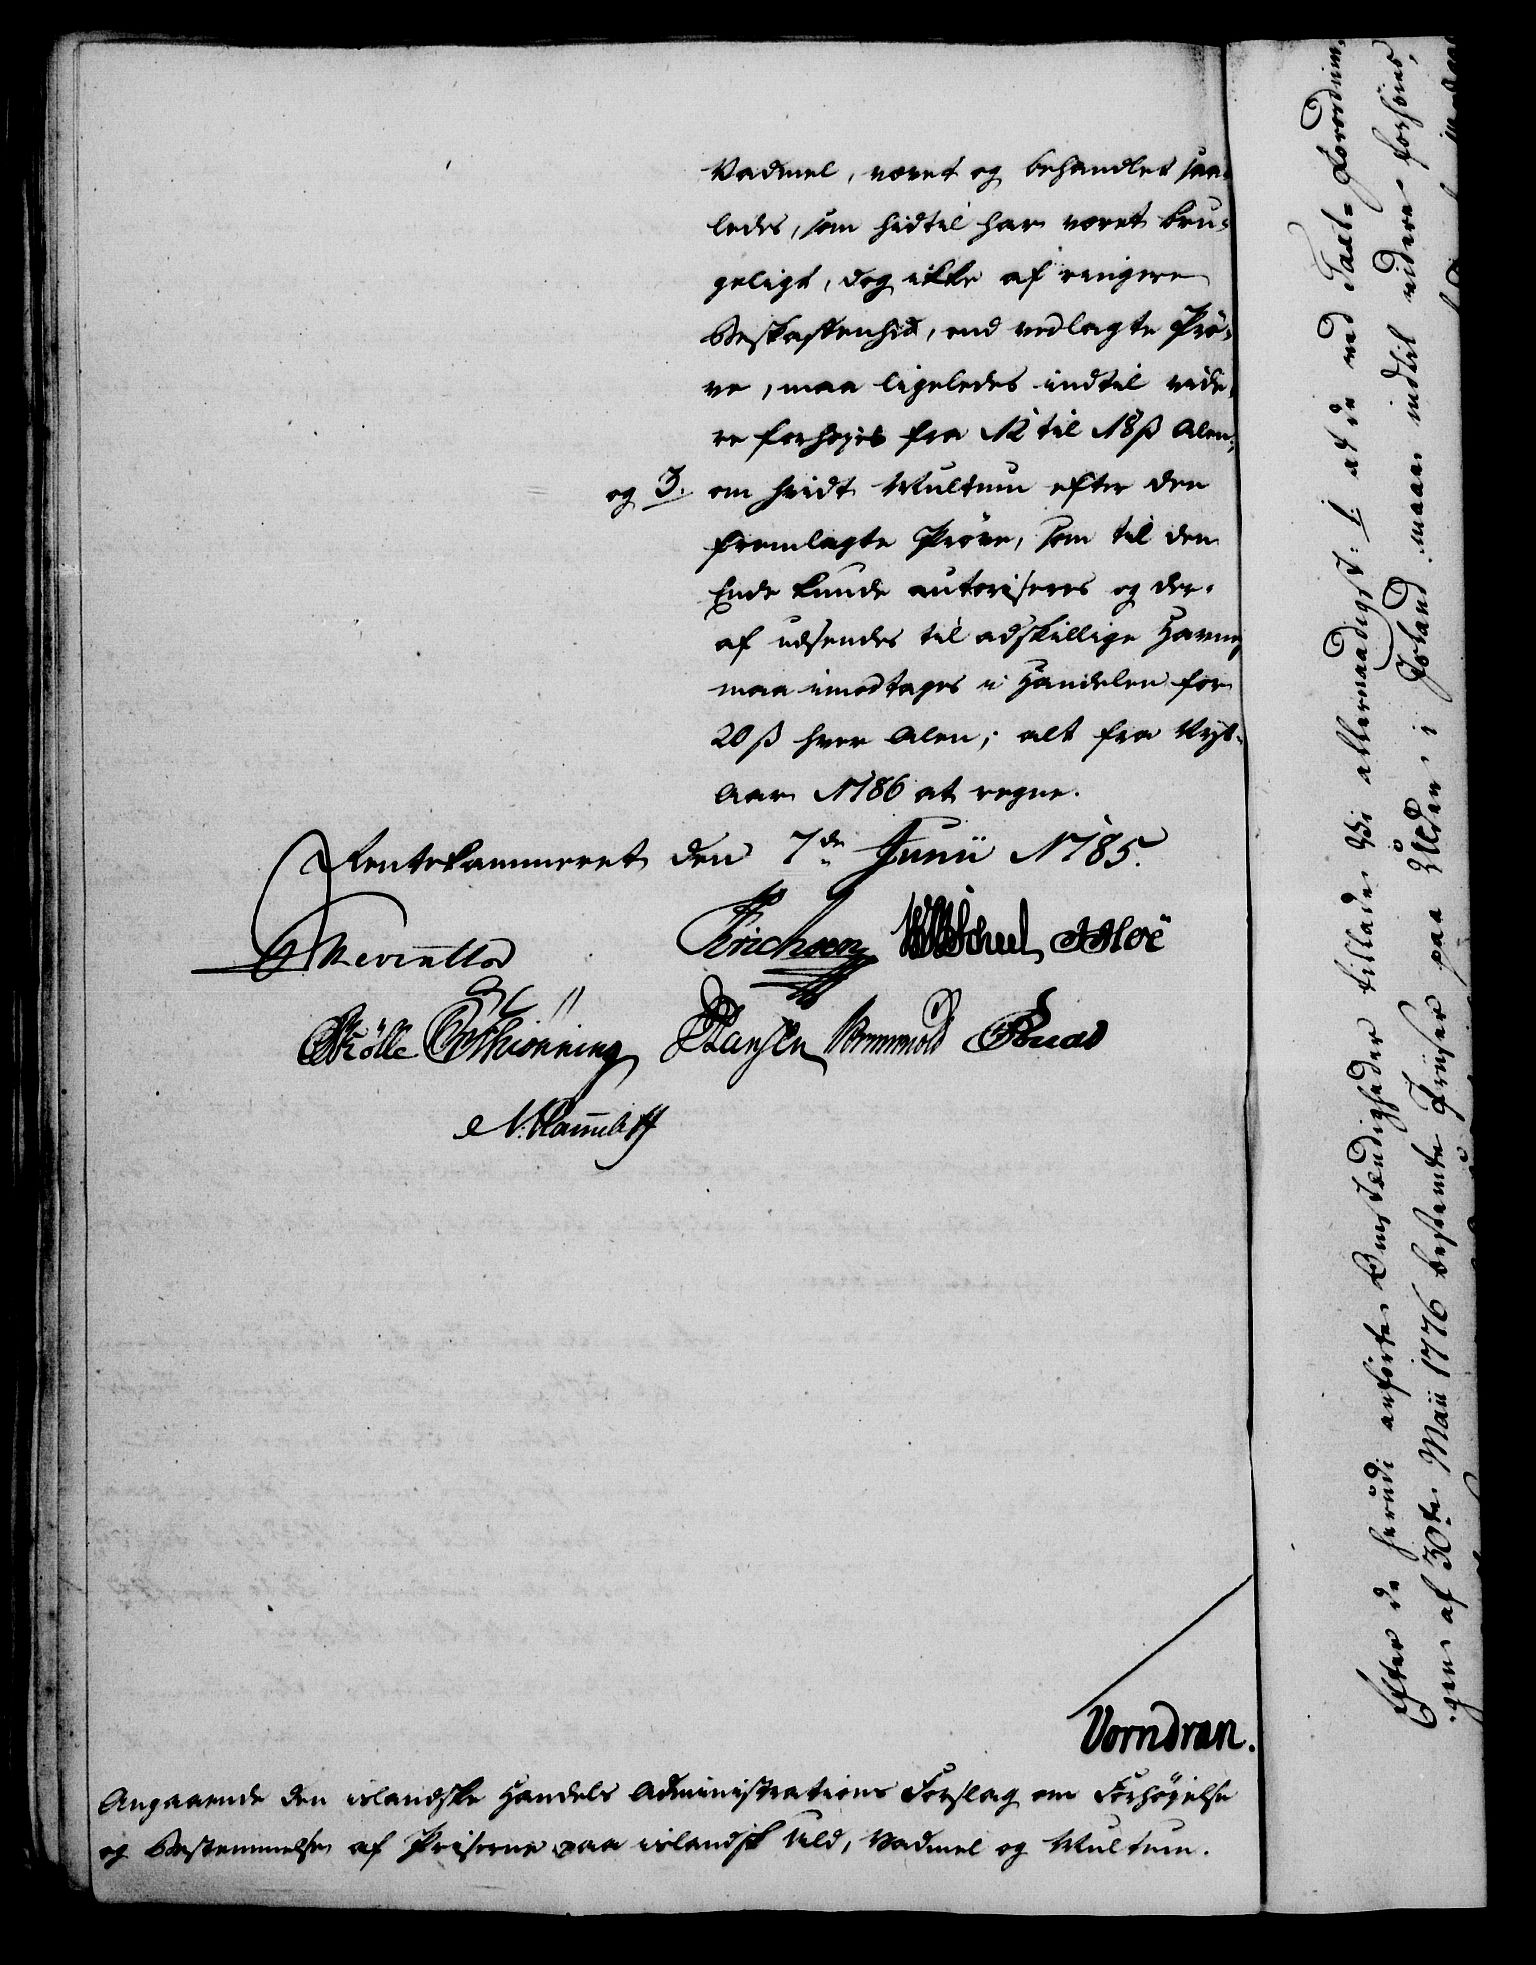 Vadmel, vævet og behandlet saa-
ledes, som hidtil har været bru-
geligt, dog ikke af ringere
Beskaffenhed, end vedlagte Prø-
ve, maa ligeledes indtil vide-
re forhøjes fra 12 til 18 ß Alen;
og 3. om hvidt Multum efter den
fremlagte Prøve, som til den
Ende kunde autoriseres og der-
af udsendes til adskillige Havne,
maa imodtages i Handelen for
20 ß hver Alen; alt fra Nyt-
aar 1786 at regne.
Rentekammeret den 7de Junii 1785.
Reventlo
Erichsen Scheel Hoë
Rölle Schiønning Hansen Brummold
Vorndran.
Angaaende den islandske Handels Administrations Forslag om Forhøjelse
og Bestemmelse af Priserne paa islandsk Uld, Vadmel og Multum.
Efter de herudi anførte Omstændigheder tillade Vi allernaadigst: 1. at de ved Taxt-Forordnin-
gen af 30te Maii 1776 bestemte Priiser paa Ulden i Island maae indtil videre forhøies,